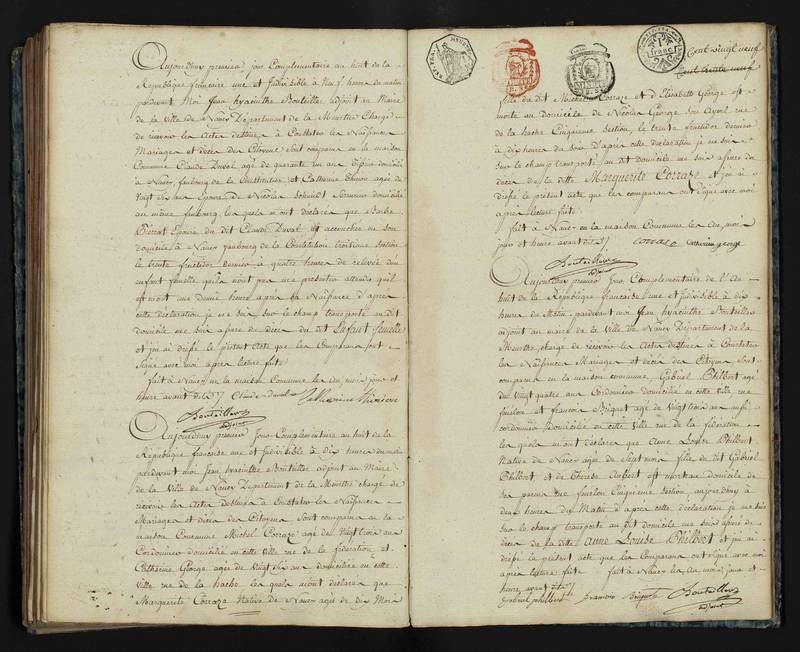 Aujourdhuy premier jour Complementaire an huit de la
Republique francaise une et Indivisible à neuf heures du matin
pardevant Moi Jean hyacinthe Boutillier adjoint au Maire
de la Ville de Nancy Département de la Meurthe Chargé
de recevoir les Actes destinés à Constater les Naissances
Mariages et décès des Citoyens sont comparus en la maison
Commune Claude Duval agé de quarante un ans domicilié
à Nancy faubourg de la Constitution et Catherine agée de
Vingt Six ans Epouse de Nicolas domicilié
au même faubourg les quels m'ont déclaré que Barbe
Pierrat Epouse du dit Claude Duval est accouchée en son
domicile à Nancy faubourg de la Constitution troisieme section
le trente fructidor dernier à quatre heures de relevée d'un
enfant femelle qu'ils n'ont pas me presenter attendu qu'il
est mort une demie heure après sa Naissance d'après
cette déclaration je me suis sur le champ transporté au dit
domicile me suis assuré du décès du dit Enfant femelle
et j'ai dressé le présent Acte que les Comparans sont
Signé avec moi après lecture faite
fait à Nancy en la maison Commune les an, mois jour et
heure avant dits Claude duval Catherine
Boutillier
adjoint
Aujourdhuy premier Jour Complementaire an huit de la
Republique francaise une et Indivisible à Dix heures du matin
pardevant moi Jean hyacinthe Boutillier adjoint au Maire
de la Ville de Nancy Departement de la Meurthe chargé de
recevoir les Actes destinés à Constater les Naissances
Mariages et décès des Citoyens Sont comparus en la
maison Commune Michel Corraze agé de Vingt trois ans
Cordonnier domicilié en cette ville rue de la fédération et
Catherine George agée de Vingt Six ans domiciliée en cette
ville rue de la hache les quels m'ont déclaré que
Marguerite Corraze Native de Nancy agée de dix Mois
1 franc
Cent vingt neuf
Cent trente neuf
fille du dit Michel Corraze et d'Elisabeth George est
morte au domicile de Nicolas George son Ayeul rue
de la hache Cinquieme section, le trente fructidor dernier
à dix heures du soir D'après cette déclaration je me suis
sur le champ transporté au dit domicile me suis assuré du
décès de la ditte Marguerite Corraze et j'ai
dressé le present acte que les comparans ont Signé avec moi
après lecture faite
fait à Nancy en la maison Commune les an, mois
jour et heure avant dits corraze Catherine george
Boutillier
adjoint
Aujourdhuy premier Jour Complementaire de l'an
huit de la Republique francaise une et Indivisible à dix
heures du Matin, pardevant moi Jean hyacinthe Boutillier
adjoint au maire de la Ville de Nancy Département de la
Meurthe, chargé de recevoir les Actes destinés à Constater
les Naissances Mariages et décès des Citoyens Sont
comparus en la maison commune Gabriel Philbert agé
de Vingt quatre ans Cordonnier domicilié en cette ville, rue
et francois Briquet agé de Vingt trois ans aussi
cordonnier domicilié en cette Ville rue de la fédération
les quels m'ont déclaré que Anne Louise Philbert
Native de Nancy agée de Sept mois fille du dit Gabriel
Philbert et de Thérèse Aubert est morte au domicile de
ses pere et mere rue Cinquieme section, aujourdhuy à
deux heures du Matin d'après cette déclaration je me suis
sur le champ transporté au dit domicile me suis assuré du
décès de la ditte Anne Louise Philbert et j'ai
dressé le present acte que les Comparans ont signé avec moi
après lecture faite fait à Nancy les an, mois jour et
heure, avant dits
Gabriel philbert francois Briquet Boutillier
adjoint